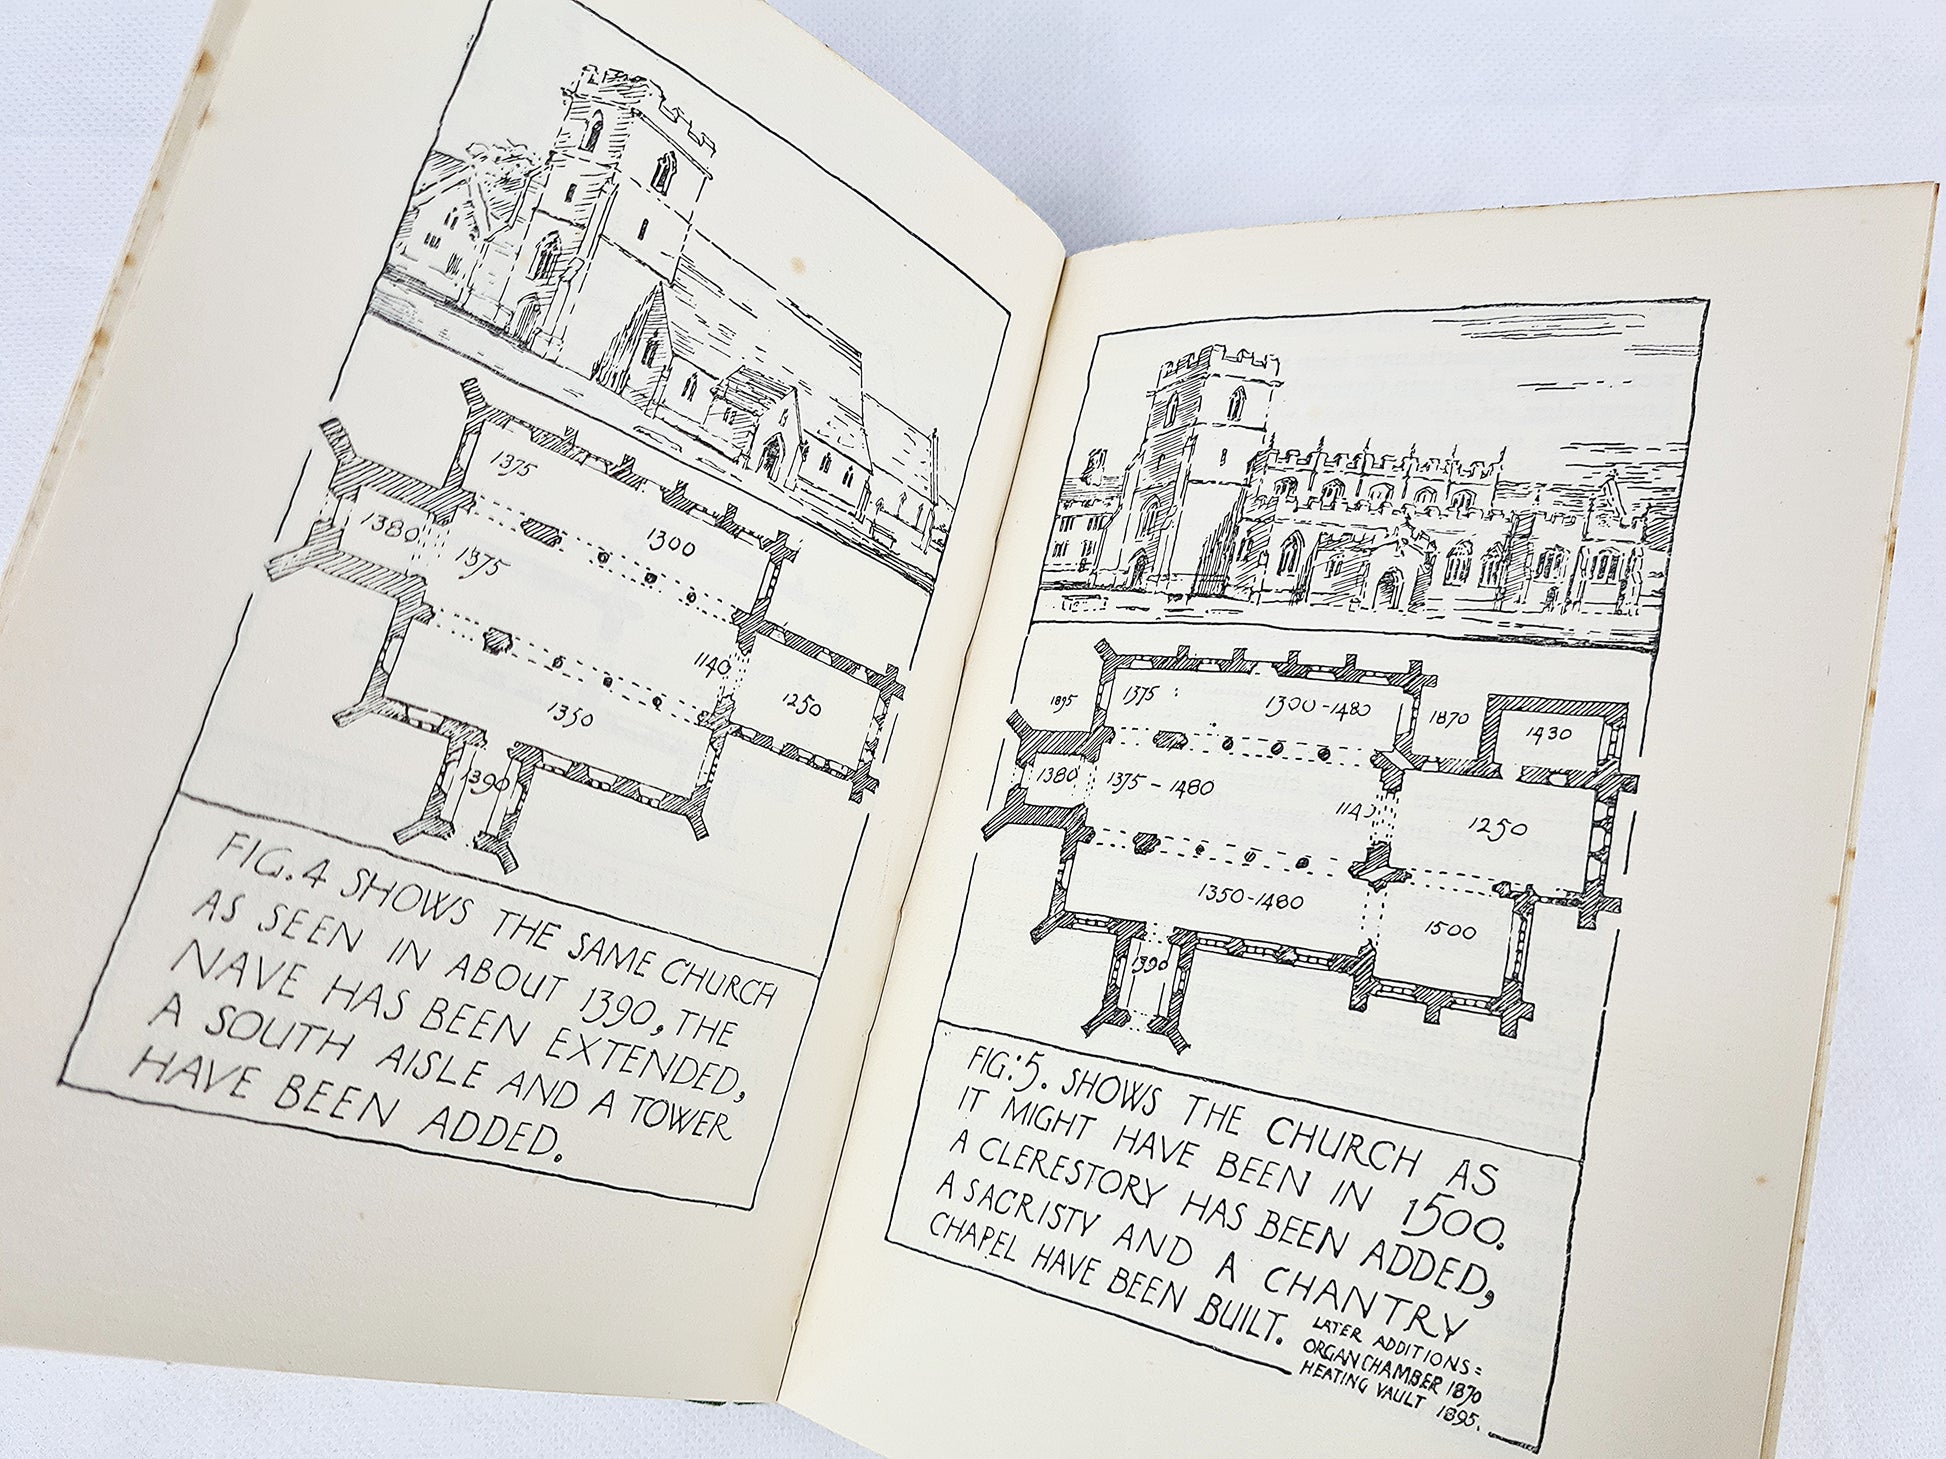 1375
1300
1380
1375
1140
1250
1350
1390
FIG. 4 SHOWS THE SAME CHURCH
AS SEEN IN ABOUT 1390, THE
NAVE HAS BEEN EXTENDED,
A SOUTH AISLE AND A TOWER
HAVE BEEN ADDED.
1895
1375
1300-1480
1870
1430
1380
1375 - 1480
1140
1250
1350-1480
1500
1390
FIG: 5. SHOWS THE CHURCH AS
IT MIGHT HAVE BEEN IN 1500.
A CLERESTORY HAS BEEN ADDED,
A SACRISTY AND A CHANTRY
CHAPEL HAVE BEEN BUILT.
LATER ADDITIONS =
ORGAN CHAMBER 1870
HEATING VAULT 1895.